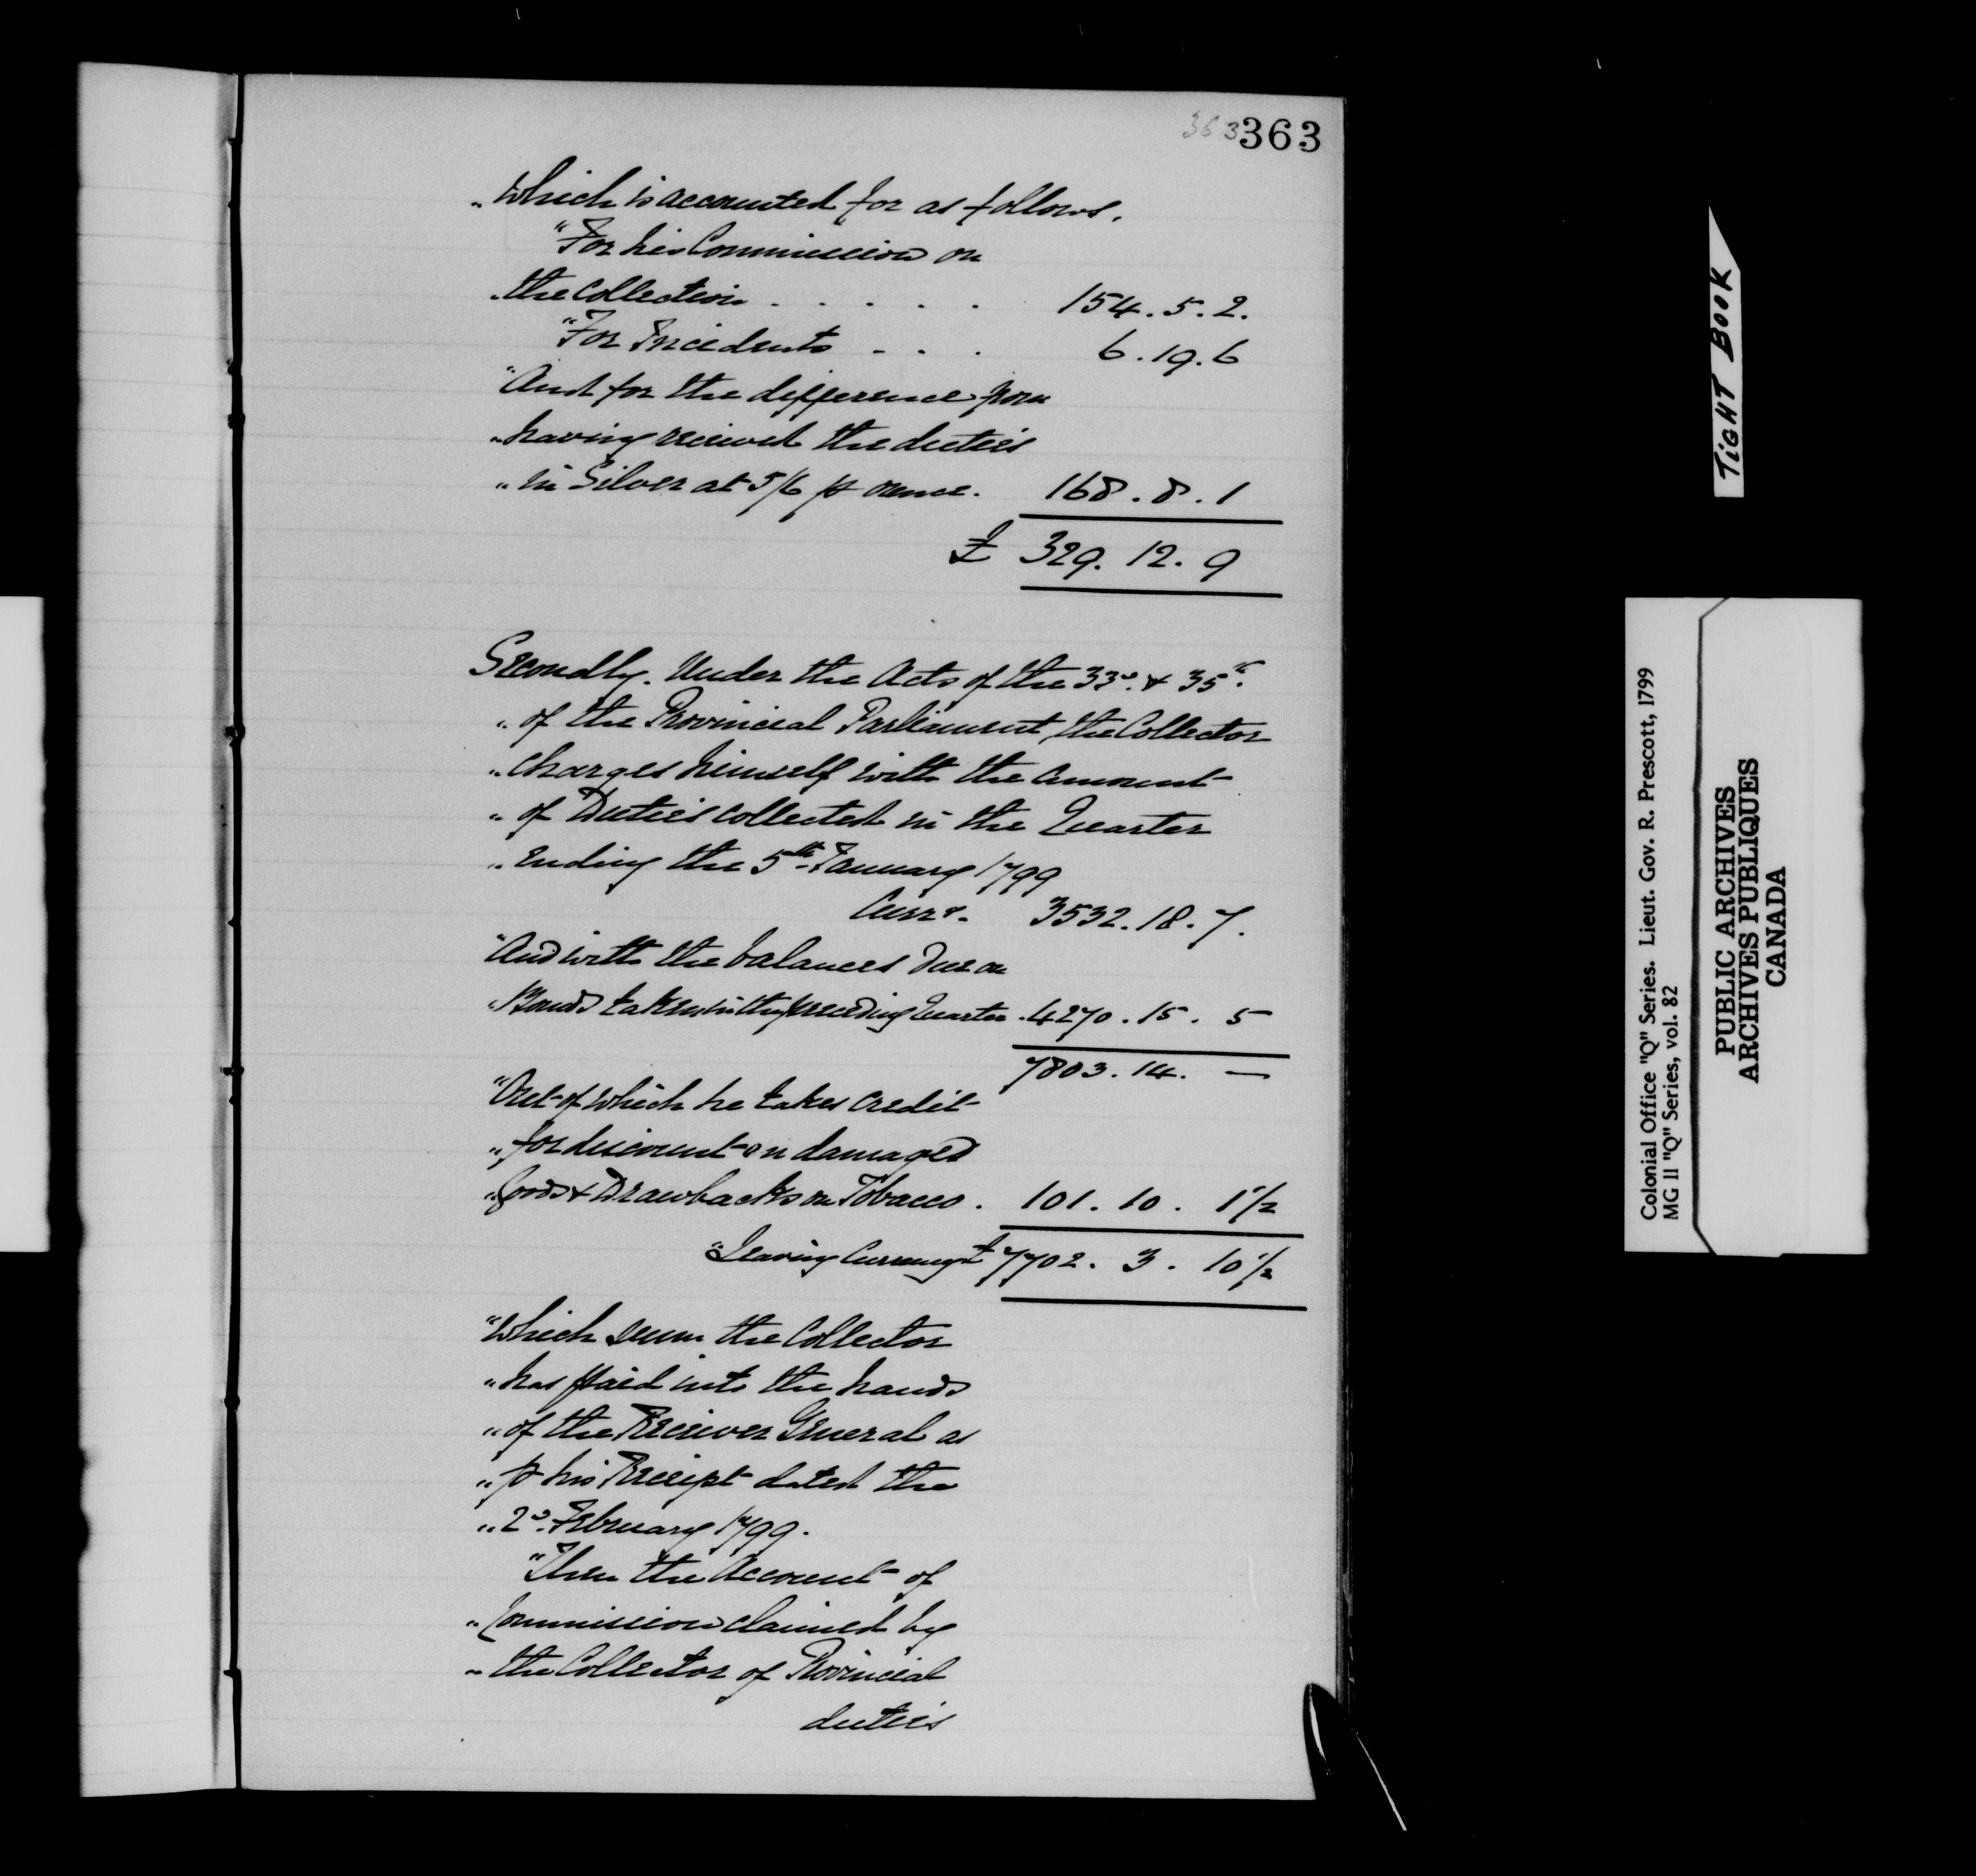 363 363
"Which is accounted for as follows.
"For his Commission on
"the Collection . . . . . 154. 5. 2.
"For Incidents - . . 6. 19. 6
"And for the difference from
"having received the duties
"in Silver at 5/6 p ounce. 168. 8. 1
£ 329. 12. 9
Secondly. Under the Acts of the 33d. & 35th.
"of the Provincial Parliament, the Collector
"charges himself with the amount
"of Duties collected in the Quarter
"Ending the 5th January 1799
Curry. 3532. 18. 7.
"And with the balances due on
"Bonds taken in the preceding Quarter . 4270. 15. 5
7803. 14. —
"Out of which he takes credit
"for discount on damaged
"goods & Drawbacks on Tobacco . 101. 10. 1 1/2
"Leaving Currency £ 7702. 3. 10 1/2
"Which sum the Collector
"has paid into the hands
"of the Receiver General as
"p his Receipt dated the
"2d. February 1799.
"Then the Account of
"Commission claimed by
"the Collector of Provincial
duties
TIGHT BOOK
Colonial Office "Q" Series. Lieut. Gov. R. Prescott, 1799
MG 11 "Q" Series, vol. 82
PUBLIC ARCHIVES
ARCHIVES PUBLIQUES
CANADA